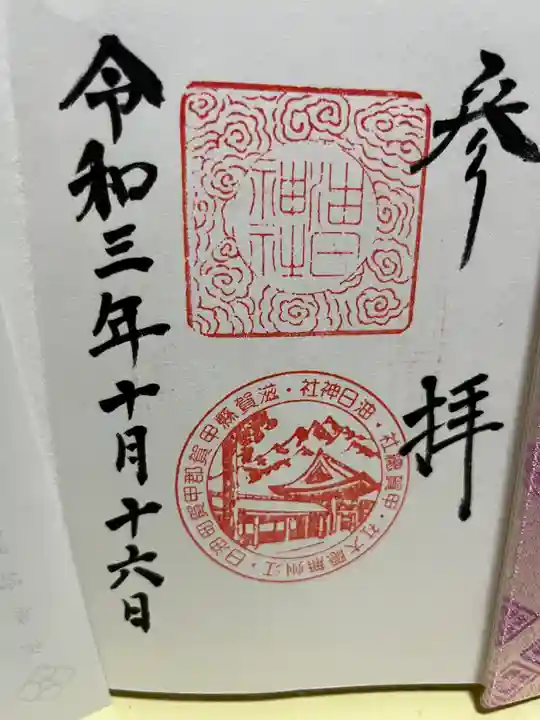 参拝
油日神社
油日神社・滋賀縣甲賀郡甲賀町油日・江州無隠大社・甲賀總社・
令和三年十月十六日